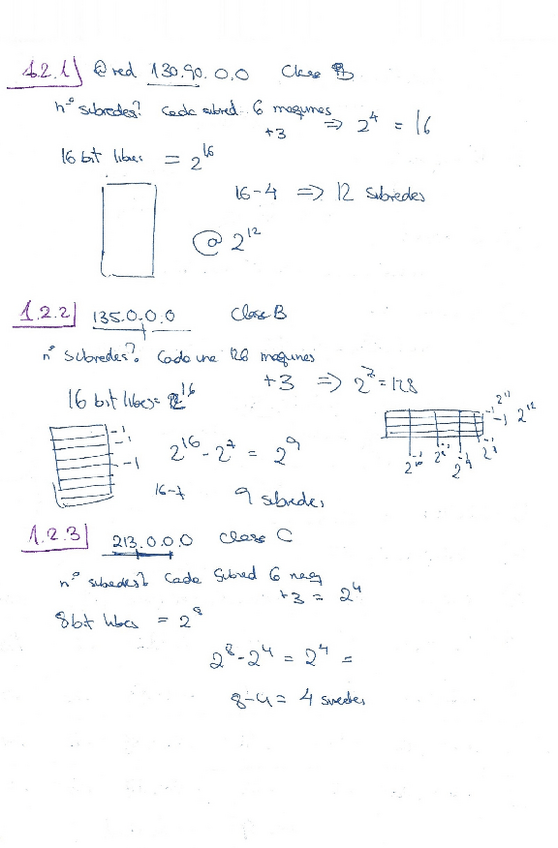 1.2.1) @red 130.90.0.0 Clase B
nº subredes? Cada subred 6 maquines
+3 => 2^4 = 16
16 bit libres = 2^16
16-4 => 12 subredes
@ 2^12
1.2.2 135.0.0.0 Clase B
nº subredes? Cada une 128 maquines
+3 => 2^7 = 128
16 bit libres = 2^16
2^16 - 2^7 = 2^9
16-7
9 subredes
-1
-1
-1
-1 2^11
-1 2^12
1.2.3 213.0.0.0 Clase C
nº subredes? Cada Subred 6 maq
+3 = 2^4
8 bit libres = 2^8
2^8 - 2^4 = 2^4 =
8-4 = 4 suredes